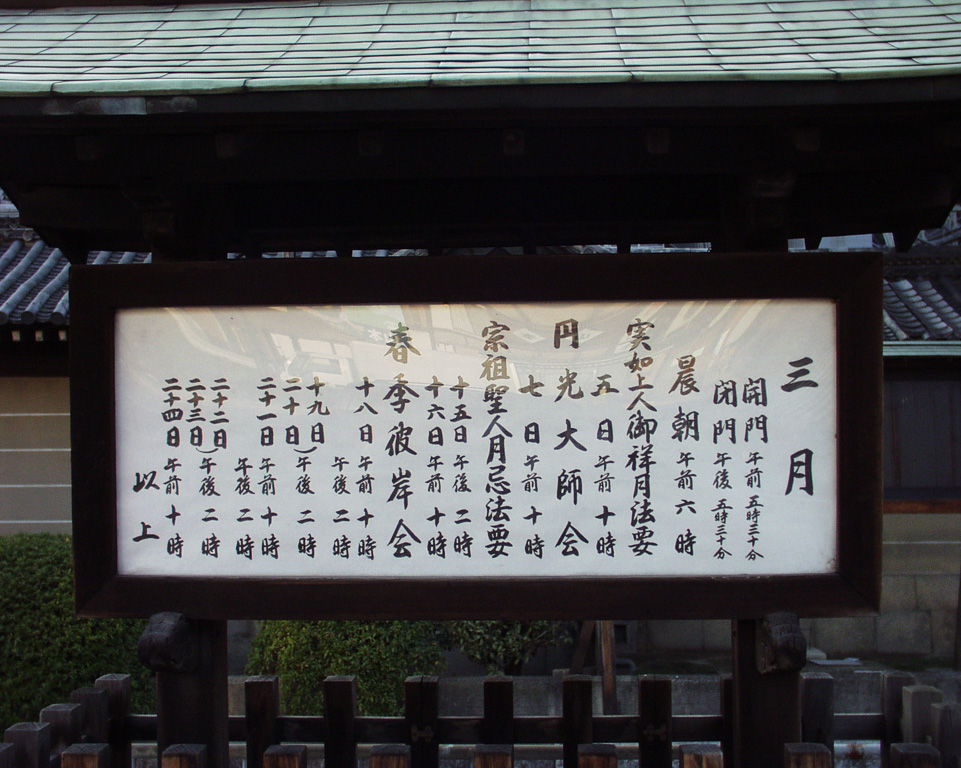 三月
開門 午前 五時三十分
閉門 午後 五時三十分
晨朝 午前 六時
実如上人御祥月法要
五日 午前 十時
円光大師会
七日 午前 十時
宗祖聖人月忌法要
十五日 午後 二時
十六日 午前 十時
春季彼岸会
十八日 午前 十時
午後 二時
十九日
二十日) 午後 二時
二十一日 午前 十時
午後 二時
二十二日
二十三日) 午後 二時
二十四日 午前 十時
以上